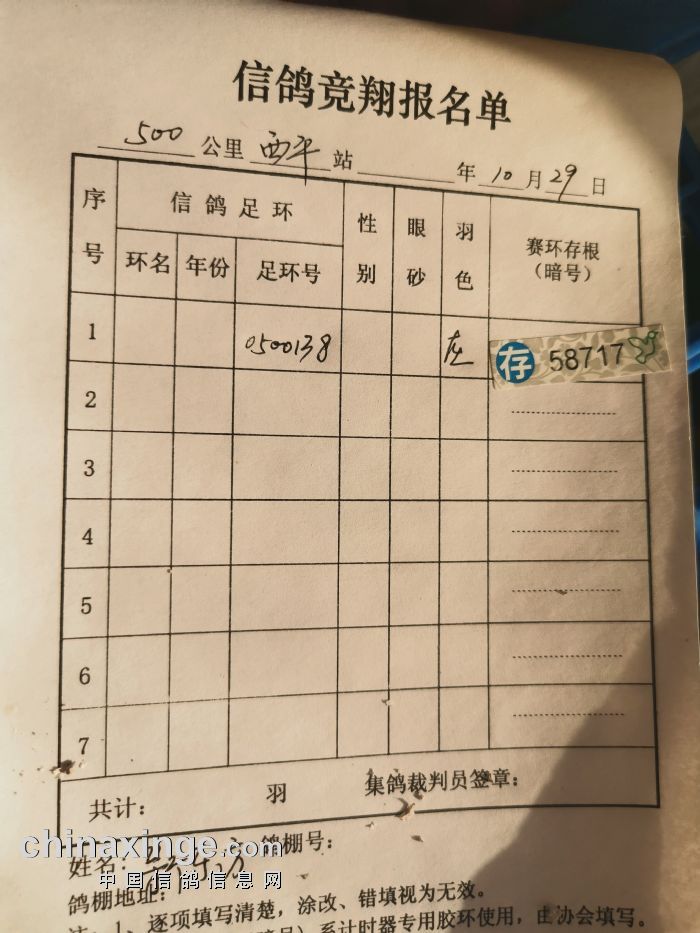 信鸽竞翔报名单
500 公里 西平 站 年 10 月 29 日
序号 信鸽足环 性别 眼砂 羽色 赛环存根（暗号）
环名 年份 足环号
1 0500138 灰 存 58717
2
3
4
5
6
7
共计: 羽 集鸽裁判员签章:
chinaxinge.com
姓名: 鸽棚号:
中国信鸽信息网
鸽棚地址:
注: 1、逐项填写清楚，涂改、错填视为无效。
系计时器专用胶环使用，由协会填写。